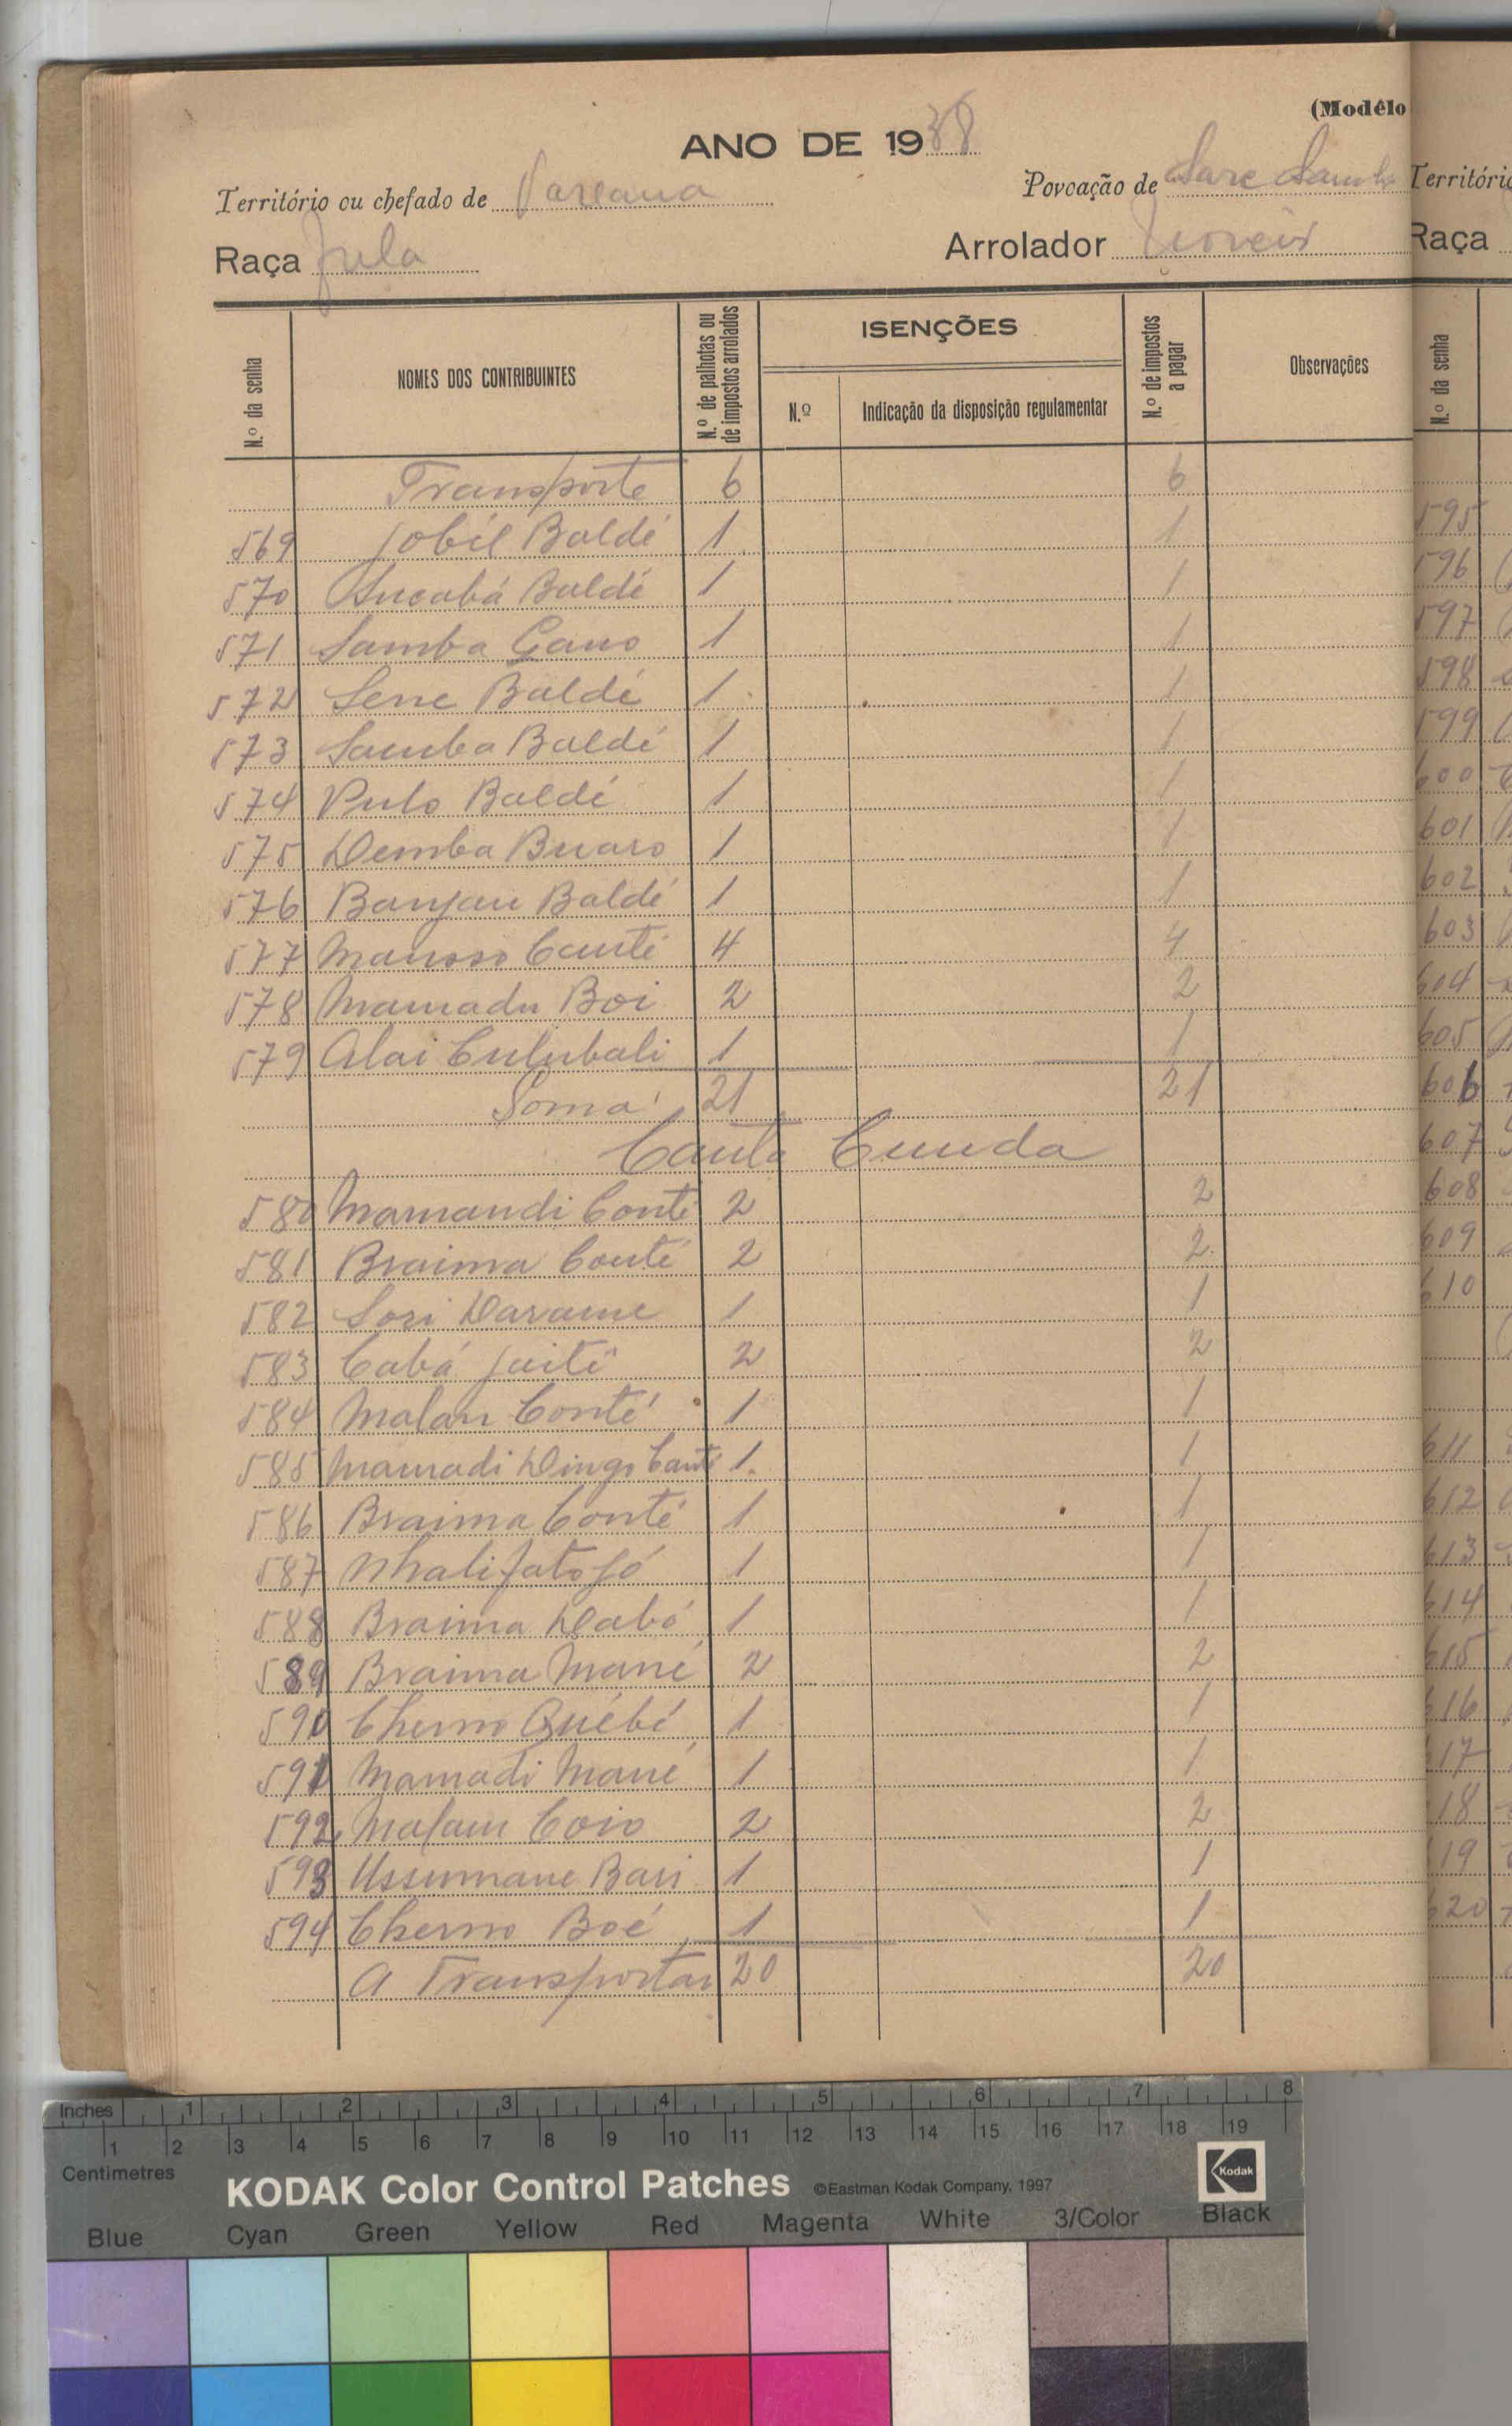 (Modêlo
ANO DE 1938
Território ou chefado de
Povoação de Sare Samba
Raça Fula
Arrolador
N.º da senha
NOMES DOS CONTRIBUINTES
N.º de palhotas ou de impostos arrolados
ISENÇÕES
N.º
Indicação da disposição regulamentar
N.º de impostos a pagar
Observações
Transporte 6 6
569 Jobél Baldé 1 1
570 Sucabá Baldé 1 1
571 Samba Gano 1 1
572 Sene Baldé 1 1
573 Samba Baldé 1 1
574 Pulo Baldé 1 1
575 Demba Buaro 1 1
576 Banjau Baldé 1 1
577 Canté 4 4
578 Mamadu Boi 2 2
579 Alai Culubali 1 1
Soma 21 21
Canta Cunda
580 Mamandi Conté 2 2
581 Braima Conté 2 2
582 Sori Darame 1 1
583 Cabá Jaité 2 2
584 Malan Conté 1 1
585 Mamadi Dingo Canté 1 1
586 Braima Conté 1 1
587 Nhalifatofó 1 1
588 Braima Dabó 1 1
589 Braima Mané 2 2
590 Cherno Québé 1 1
591 Mamadi Mané 1 1
592 Malam Coio 2 2
593 Ussumane Bari 1 1
594 Cherno Boé 1 1
A Transportar 20 20
Território
Raça
N.º da senha
595
596
597
598
599
600
601
602
603
604
605
606
607
608
609
610
611
612
613
614
615
616
617
618
619
620
Inches 1 2 3 4 5 6 7 8
1 2 3 4 5 6 7 8 9 10 11 12 13 14 15 16 17 18 19
Centimetres
KODAK Color Control Patches ©Eastman Kodak Company, 1997
Kodak
Blue Cyan Green Yellow Red Magenta White 3/Color Black